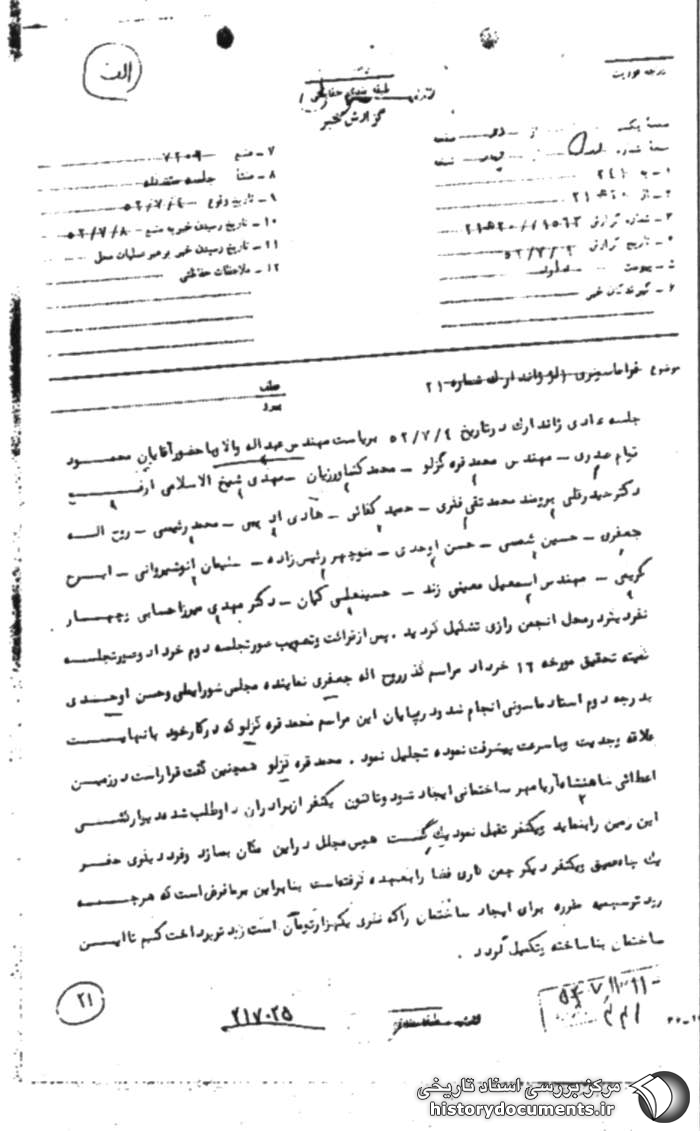 الف
طبقه بندی حفاظتی
گزارش خبر
درجه فوریت
۷ - منبع ۷۲۰۹
۸ - منشأ جلسه متشکله
۹ - تاریخ وقوع ۵۲/۷/۴
۱۰ - تاریخ رسیدن خبر به منبع ۵۲/۷/۸
۱۱ - تاریخ رسیدن خبر به رهبر عملیات محل
۱۲ - ملاحظات حفاظتی
صفحه یک از صفحه
نسخه شماره از نسخه
۱ - به ۲۴۱
۲ - از ۲۱ ه ۲۰
۳ - شماره گزارش
۴ - تاریخ گزارش
۵ - پیوست ندارد
۶ - گیرندگان خبر
موضوع فراماسونری لژ ژاندارک شماره ۲۱
عطف
پیرو
جلسه عادی ژاندارک در تاریخ ۵۲/۷/۴ بریاست مهندس عبداله والا وباحضور آقایان محمود
قیام صدری - مهندس محمد قره گزلو - محمد کشاورزیان - مهدی شیخ الاسلامی ارفع
دکتر حیدرقلی برومند محمد تقی فخری - حمید کفائی - هادی - محمد رئیسی - روح اله
جعفری - حسین شمسی - حسن اوحدی - منوچهر رئیس زاده - سلیمان انوشیروانی - ایرج
کریمی - مهندس اسمعیل معینی زند - حسینعلی کمان - دکتر مهدی میرزا حسابی وچهار
نفر دیگر در محل انجمن رازی تشکیل گردید . پس از قرائت وتصویب صورتجلسه دوم خرداد وصورتجلسه
کمیته تحقیق مورخه ۱۶ خرداد مراسم گذر روح اله جعفری نماینده مجلس شورایملی وحسن اوحدی
بدرجه دوم استاد ماسونی انجام شد ودر پایان این مراسم محمد قره گزلو که در کار خود بانهایت
علاقه وجدیت وباسرعت پیشرفت نموده تجلیل نمود . محمد قره گزلو همچنین گفت قرار است در زمین
اعطائی شاهنشاه آریامهر ساختمانی ایجاد شود وتاکنون یکنفر از برادران داوطلب شده دیوارکشی
این زمین را بنماید ویکنفر تقبل نمود یک گیست هیس مجلل در این مکان بسازد وفرد دیگری حفر
یک چاه عمیق ویکنفر دیگر چمن کاری فضا را بعهده گرفته است بنابراین برما فرض است که هرچه
زودتر سهمیه مقرره برای ایجاد ساختمان را که نفری یکهزار تومان است زودتر پرداخت کنیم تا این
ساختمان بنا ساخته وتکمیل گردد .
۲۱
۲۱۷۰۲۵
طبقه بندی
مرکز بررسی اسناد تاریخی
historydocuments.ir